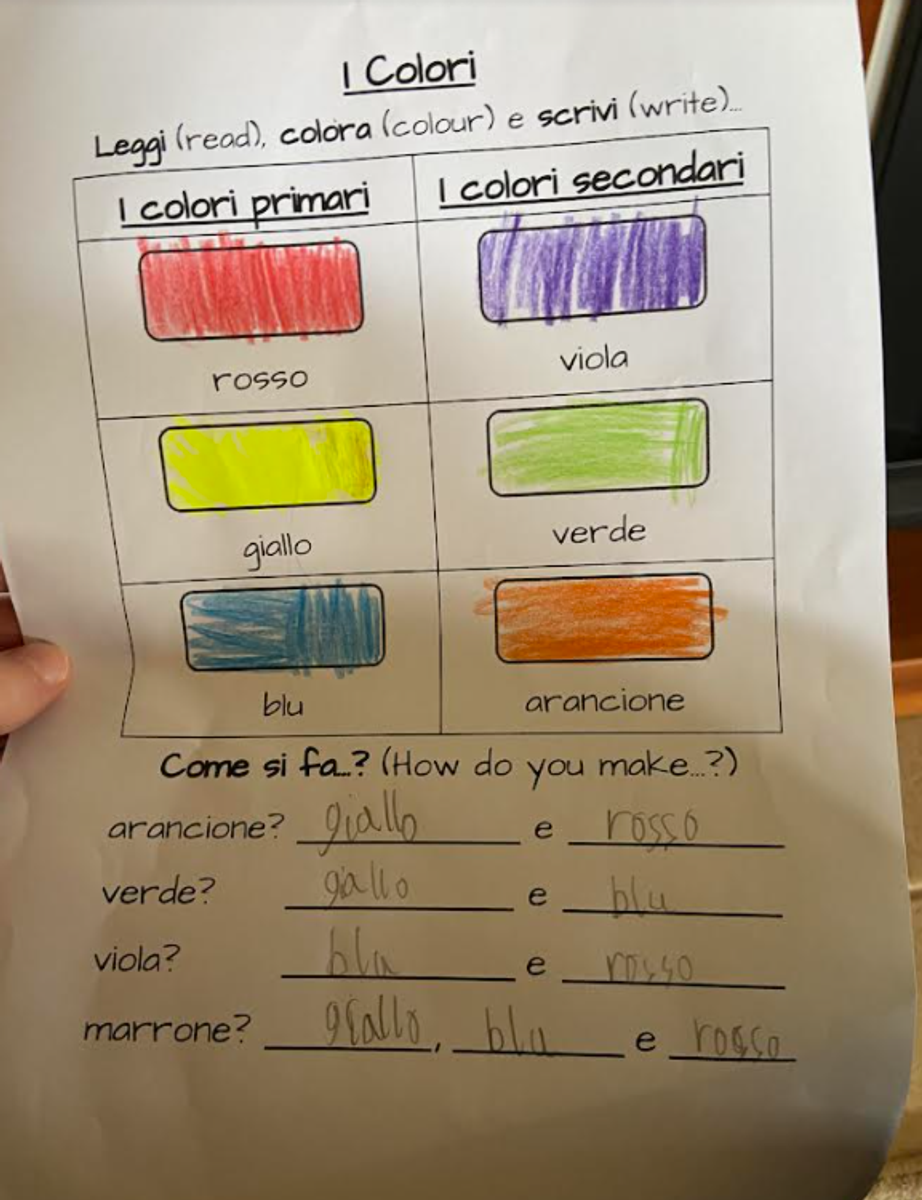 I Colori
Leggi (read), colora (colour) e scrivi (write)...
I colori primari I colori secondari
rosso viola
giallo verde
blu arancione
Come si fa...? (How do you make...?)
arancione? giallo e rosso
verde? giallo e blu
viola? blu e rosso
marrone? giallo, blu e rosso